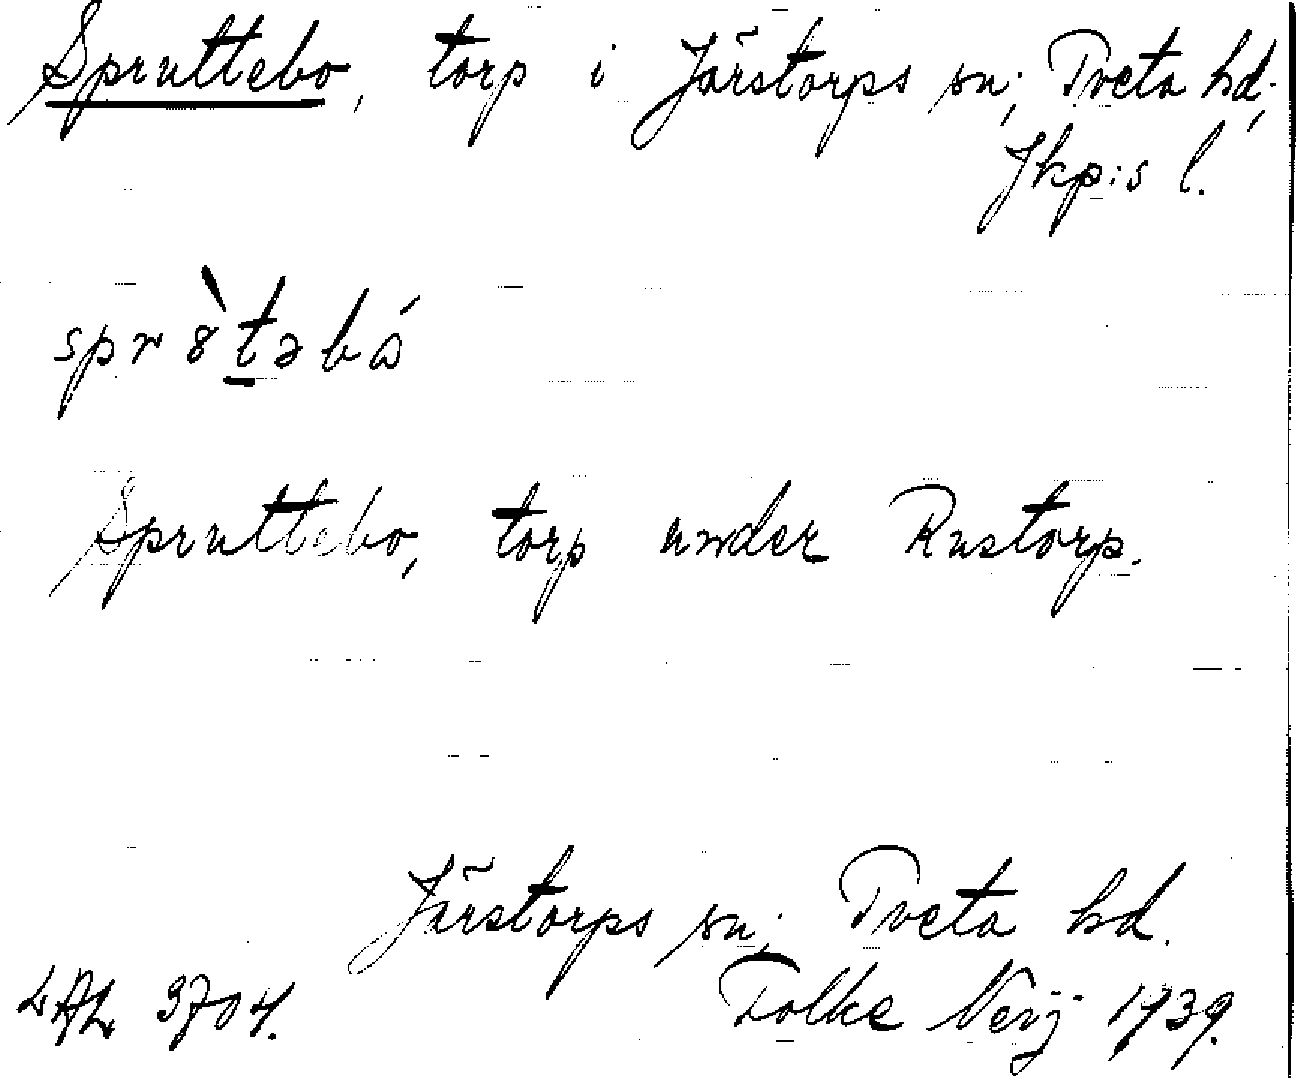 Spruttebo, torp i Järstorps sn; Tveta hd;
Jkp:s l.
Spruttebo, torp under Rustorp.
Järstorps sn; Tveta hd.
LAL 3704. Folke 1939.